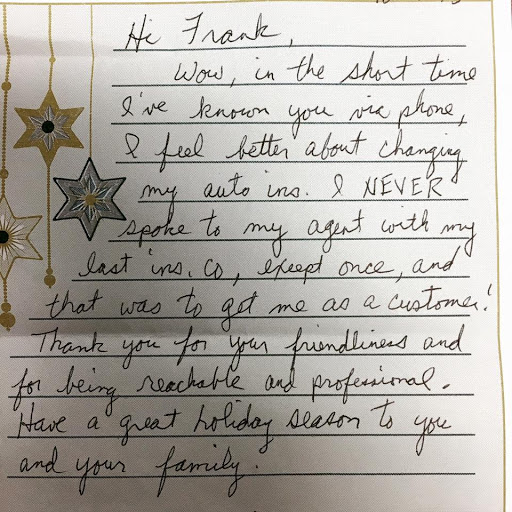 Hi Frank,
Wow, in the short time
I've known you via phone,
I feel better about changing
my auto ins. I NEVER
spoke to my agent with my
last ins. co, except once, and
that was to get me as a customer!
Thank you for your friendliness and
for being reachable and professional.
Have a great holiday season to you
and your family.